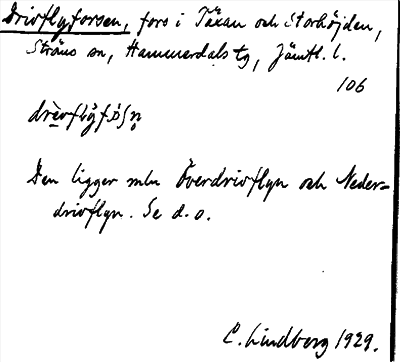 Drivflyforsen, fors i Täxan och Storhöjden,
Ströms sn, Hammerdals tg, Jämtl. l.
106
Den ligger mln Överdrivflyn och Neder-
drivflyn. Se d. o.
C. Lindberg 1929.